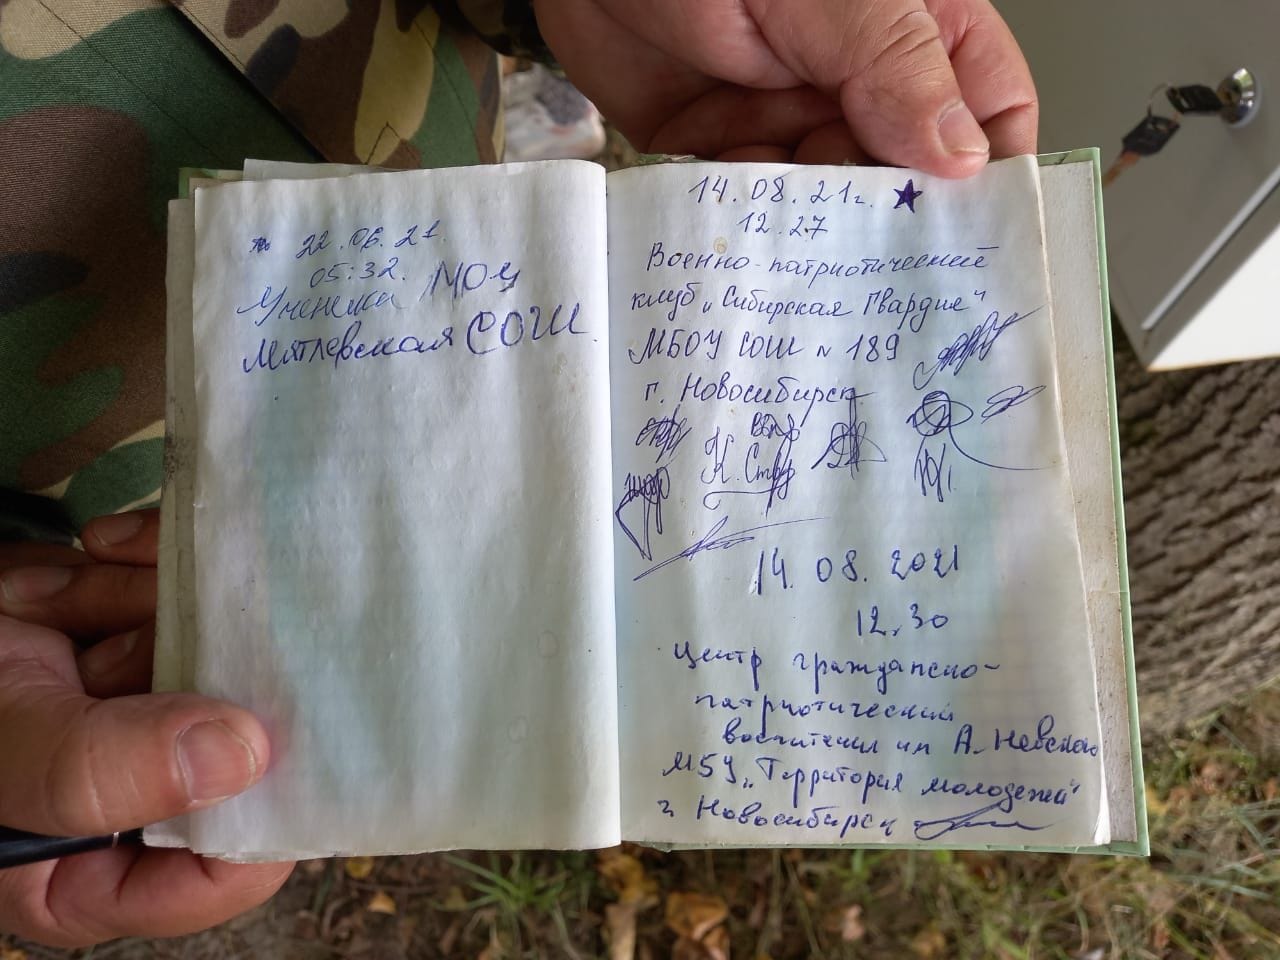 22.06.21.
05:32.
Ученики МОУ
Мятлевская СОШ
14.08.21г.
12.27
Военно-патриотический
клуб „Сибирская Гвардия"
МБОУ СОШ № 189
г. Новосибирск
К. Стр
14. 08. 2021
12.30
Центр гражданско-
патриотический
воспитания им А. Невского
МБУ „Территория молодежи"
г. Новосибирск